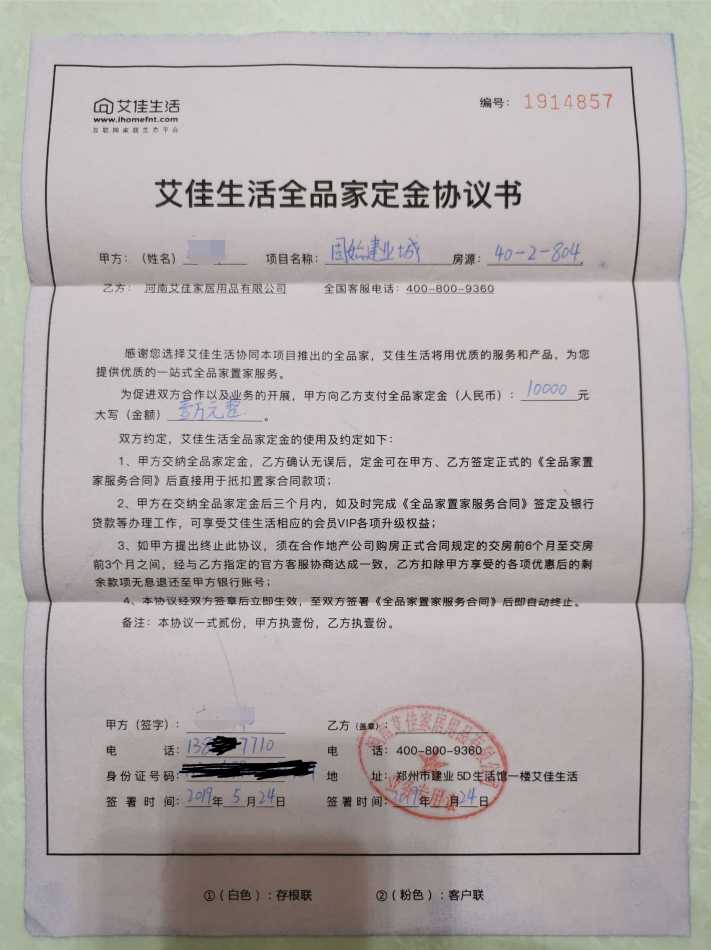 艾佳生活
www.ihomefnt.com
互联网家居生态平台
编号: 1914857
艾佳生活全品家定金协议书
甲方: (姓名) 项目名称: 固始建业城 房源: 40-2-804
乙方: 河南艾佳家居用品有限公司 全国客服电话: 400-800-9360
感谢您选择艾佳生活协同本项目推出的全品家，艾佳生活将用优质的服务和产品，为您
提供优质的一站式全品家置家服务。
为促进双方合作以及业务的开展，甲方向乙方支付全品家定金（人民币）: 10000 元
大写（金额）壹万元整。
双方约定，艾佳生活全品家定金的使用及约定如下:
1、甲方交纳全品家定金，乙方确认无误后，定金可在甲方、乙方签定正式的《全品家置
家服务合同》后直接用于抵扣置家合同款项;
2、甲方在交纳全品家定金后三个月内，如及时完成《全品家置家服务合同》签定及银行
贷款等办理工作，可享受艾佳生活相应的会员VIP各项升级权益;
3、如甲方提出终止此协议，须在合作地产公司购房正式合同规定的交房前6个月至交房
前3个月之间，经与乙方指定的官方客服协商达成一致，乙方扣除甲方享受的各项优惠后的剩
余款项无息退还至甲方银行账号;
4、本协议经双方签章后立即生效，至双方签署《全品家置家服务合同》后即自动终止。
备注: 本协议一式贰份，甲方执壹份，乙方执壹份。
甲方（签字）: 乙方（盖章）:
电话: 138 7710 电话: 400-800-9360
身份证号码: 地址: 郑州市建业5D生活馆一楼艾佳生活
签署时间: 2019年5月24日 签署时间: 2019年 月24日
河南艾佳家居用品有限公司
业务专用章
①（白色）: 存根联 ②（粉色）: 客户联